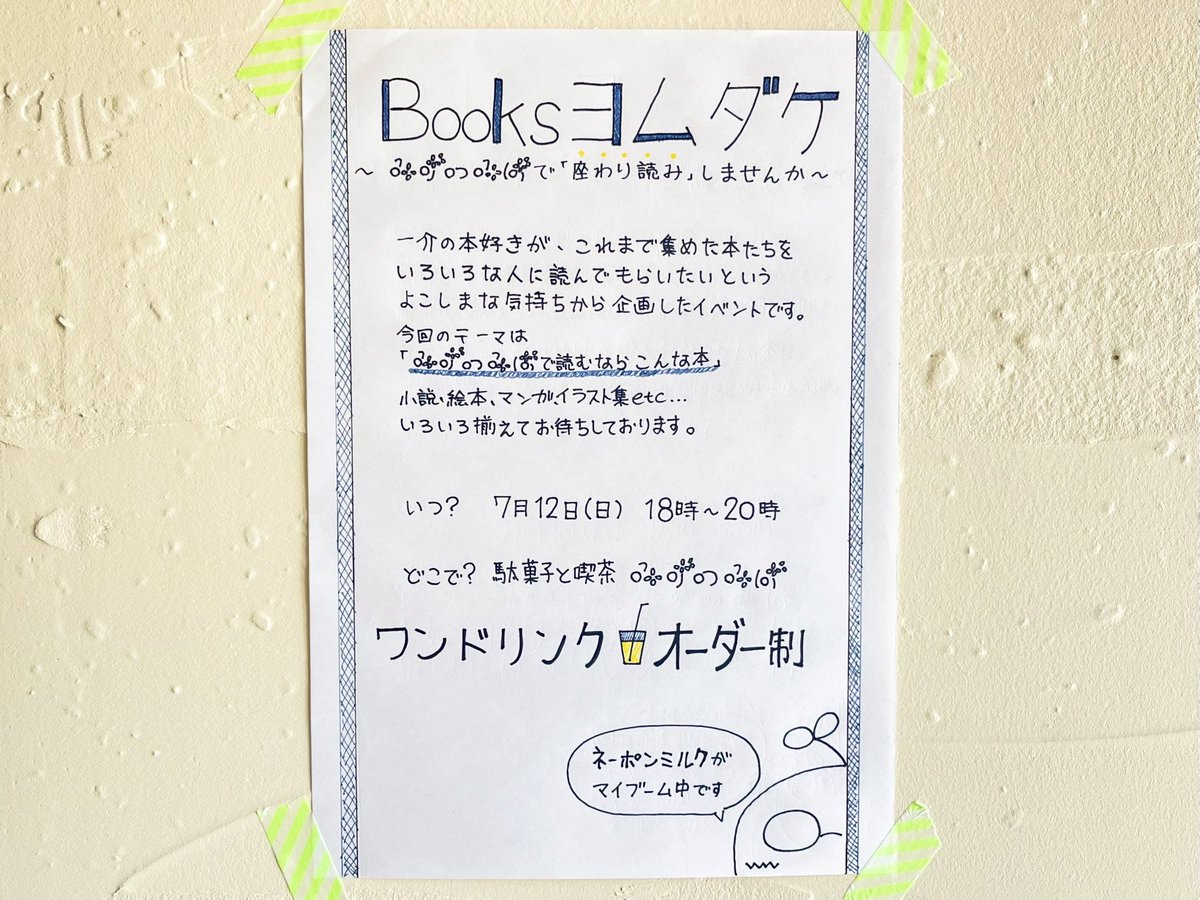 Booksヨムダケ
～ で「座わり読み」しませんか～
一介の本好きが、これまで集めた本たちを
いろいろな人に読んでもらいたいという
よこしまな気持ちから企画したイベントです。
今回のテーマは
「 で読むならこんな本」
小説、絵本、マンガ、イラスト集etc...
いろいろ揃えてお待ちしております。
いつ? 7月12日(日) 18時～20時
どこで? 駄菓子と喫茶
ワンドリンクオーダー制
ネーポンミルクが
マイブーム中です